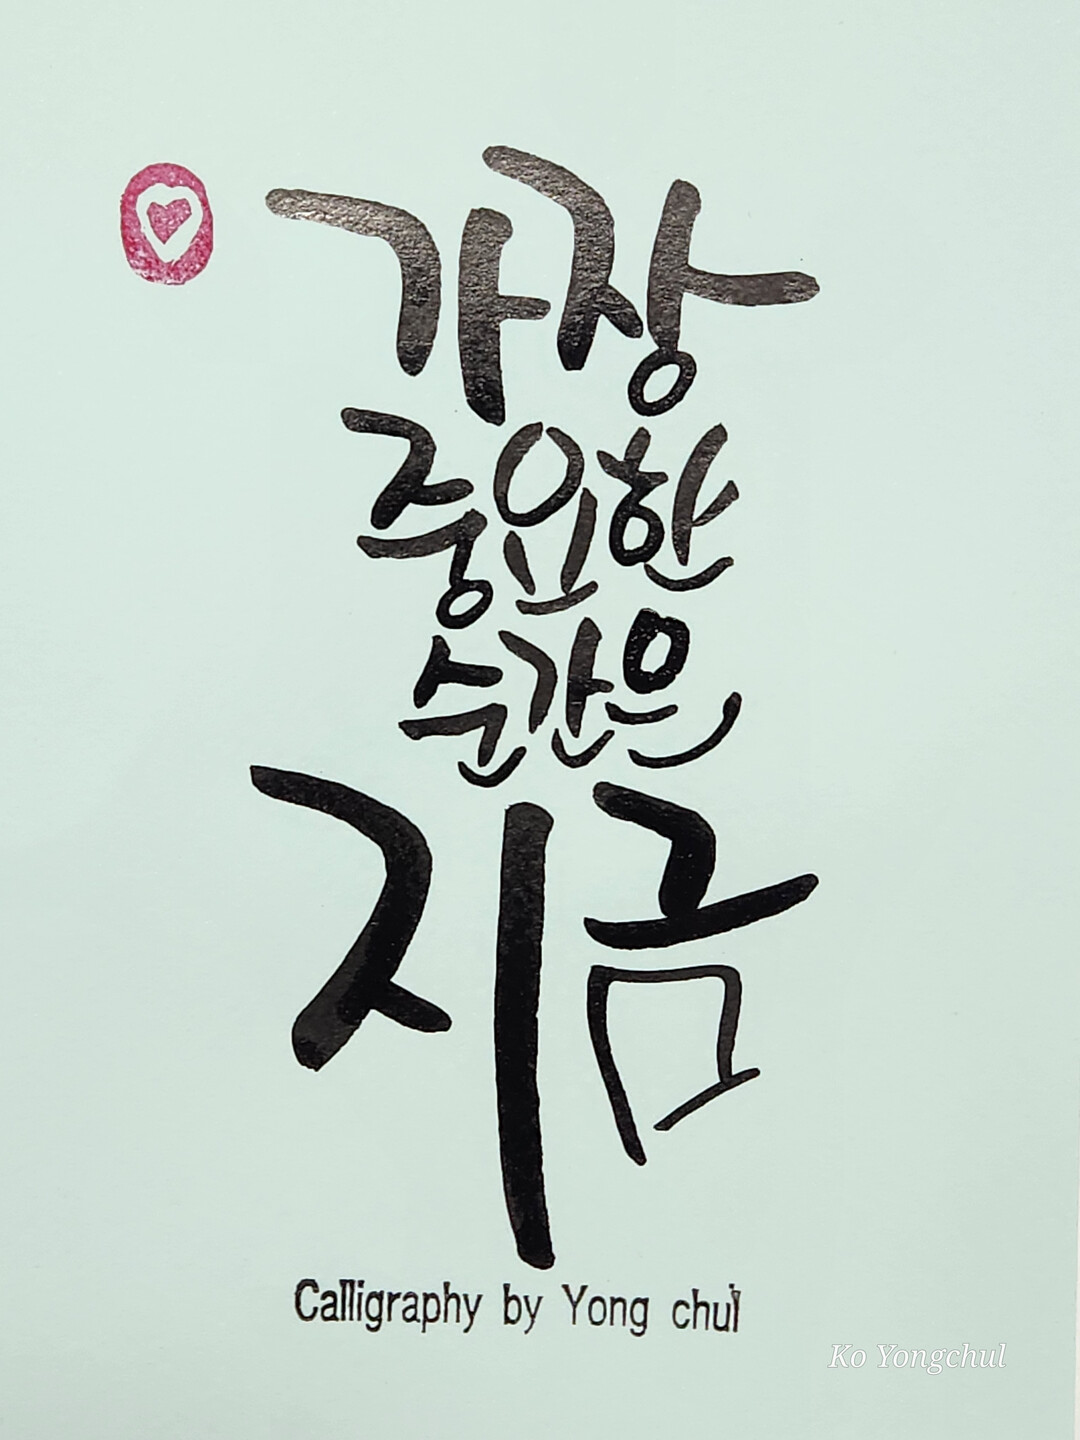 가장
중요한
순간은
지금
Calligraphy by Yong chul
Ko Yongchul